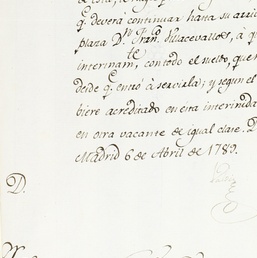 q. deverá continuar hasta su arri
plaza Dn. Franco. Villacevallos, á q
te
interinam, con todo el meldo, que
desde q. entró á servirla; y segun el
biere acreditado en esta interinida
en otra vacante de igual clase. D
Madrid 6 de Abril de 1789.
D.